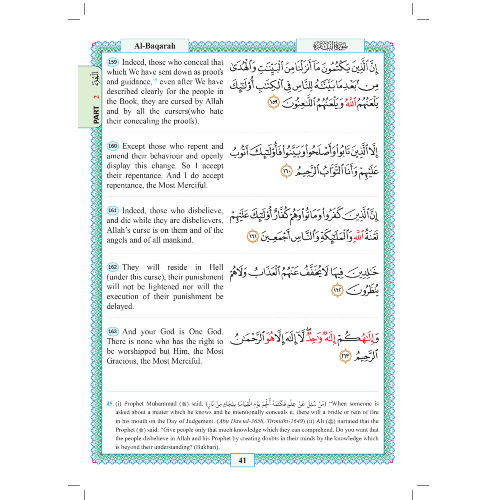 Al-Baqarah
سُورَةُ الْبَقَرَةِ
PART 2
159 Indeed, those who conceal that
which We have sent down as proofs
and guidance, even after We have
described clearly for the people in
the Book, they are cursed by Allah
and by all the cursers(who hate
their concealing the proofs).
إِنَّ ٱلَّذِينَ يَكْتُمُونَ مَآ أَنزَلْنَا مِنَ ٱلْبَيِّنَٰتِ وَٱلْهُدَىٰ
مِنۢ بَعْدِ مَا بَيَّنَّٰهُ لِلنَّاسِ فِى ٱلْكِتَٰبِ أُو۟لَٰٓئِكَ
يَلْعَنُهُمُ ٱللَّهُ وَيَلْعَنُهُمُ ٱللَّٰعِنُونَ ١٥٩
160 Except those who repent and
amend their behaviour and openly
display this change. So I accept
their repentance. And I do accept
repentance, the Most Merciful.
إِلَّا ٱلَّذِينَ تَابُوا۟ وَأَصْلَحُوا۟ وَبَيَّنُوا۟ فَأُو۟لَٰٓئِكَ أَتُوبُ
عَلَيْهِمْ وَأَنَا ٱلتَّوَّابُ ٱلرَّحِيمُ ١٦٠
161 Indeed, those who disbelieve,
and die while they are disbelievers,
Allah's curse is on them and of the
angels and of all mankind.
إِنَّ ٱلَّذِينَ كَفَرُوا۟ وَمَاتُوا۟ وَهُمْ كُفَّارٌ أُو۟لَٰٓئِكَ عَلَيْهِمْ
لَعْنَةُ ٱللَّهِ وَٱلْمَلَٰٓئِكَةِ وَٱلنَّاسِ أَجْمَعِينَ ١٦١
162 They will reside in Hell
(under this curse), their punishment
will not be lightened nor will the
execution of their punishment be
delayed.
خَٰلِدِينَ فِيهَا لَا يُخَفَّفُ عَنْهُمُ ٱلْعَذَابُ وَلَا هُمْ
يُنظَرُونَ ١٦٢
163 And your God is One God.
There is none who has the right to
be worshipped but Him, the Most
Gracious, the Most Merciful.
وَإِلَٰهُكُمْ إِلَٰهٌ وَٰحِدٌ لَّآ إِلَٰهَ إِلَّا هُوَ ٱلرَّحْمَٰنُ
ٱلرَّحِيمُ ١٦٣
45. (i) Prophet Muhammad (ﷺ) said, (مَنْ سُئِلَ عَنْ عِلْمٍ فَكَتَمَهُ أُلْجِمَ يَوْمَ الْقِيَامَةِ بِلِجَامٍ مِنْ نَارٍ) "When someone is
asked about a matter which he knows and he intentionally conceals it, there will a bridle or rein of fire
in his mouth on the Day of Judgement. (Abu Dawud-3658, Tirmidhi-2649) (ii) Ali narrated that the
Prophet (ﷺ) said: "Give people only that much knowledge which they can comprehend. Do you want that
the people disbelieve in Allah and his Prophet by creating doubts in their minds by the knowledge which
is beyond their understanding? (Bukhari).
41